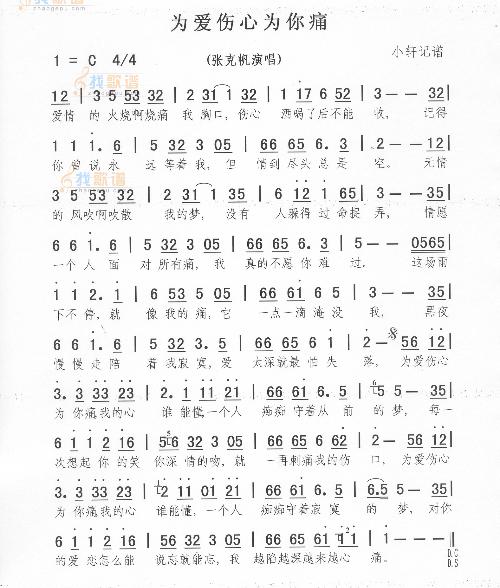 找歌谱
zhaogepu.com
为爱伤心为你痛
1 = C 4/4
(张克帆演唱)
小轩记谱
找歌谱
12 | 3 5 53 32 | 2 31 1 32 | 1 17 6 5 | 2 - - 32 |
爱情 的 火烧啊烧痛 我 胸口，伤心 酒喝了后不能 收， 记得
1 1 1. 6 | 5 32 3 05 | 66 65 6. 1 | 2 - - 12 |
你 曾 说 永 远 等着 我，但 情到 尽头 总 是 空。 无情
找歌谱
3 5 53 32 | 2 31 1 65 | 6 12 1 65 | 5 - - 35 |
的 风吹啊吹散 我的梦， 没有 人躲得 过命捉 弄， 情愿
6 6 1. 6 | 5 32 3 05 | 66 65 6. 1 | 2 - - 0565 |
一个 人 面 对 所有痛，我 真的不愿 你 难 过。 这场雨
1 1 2. 1 | 6 53 5 05 | 66 61 65 1 | 3 - - 35 |
下不 停，就 像我的 痛，它 一点一滴 淹没 我， 黑夜
6 6 1. 6 | 5 32 3 05 | 66 65 61 1 | 2 - - 56 12 |
慢慢 走 陪 着 我寂 寞，爱 太深就最 怕失 落， 为爱伤心
3. 3 33 32 | 1 12 1 65 | 66 61 6. 5 | 5 - - 35 |
为 你痛我的心 谁 能懂，一个人 痴痴 守着 从 前 的 梦， 每一
6 11 12 16 | 5 32 3 05 | 66 65 66 61 | 2 - 56 12 |
次想起 你的 笑 你深 情的吻，就 一再刺痛我的伤 口， 为爱伤心
3. 3 33 32 | 1 12 1 65 | 66 61 6 5 | 6.5 5 - 35 |
为 你痛我的心 谁能懂，一个人 痴痴守着寂 寞 的 梦， 对你
6 11 12 16 | 5 32 3 05 | 66 65 61 12 | 1 - - |
的爱 恋怎么能 说忘就能忘，我 越陷越深越来越心 痛。
D.C
D.S